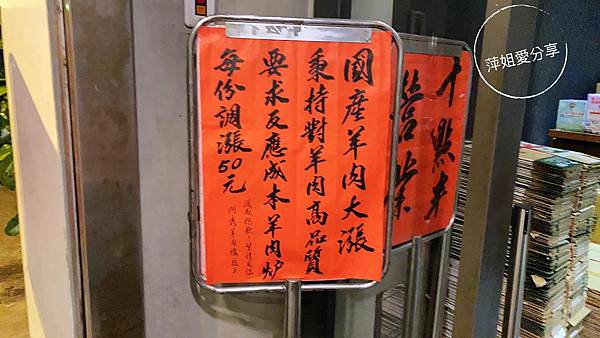 國產羊肉大漲
秉持對羊肉高品質
要求反應成本羊肉炉
每份調漲50元
造成抱歉，望請見諒
十點半
營業
萍姐愛分享